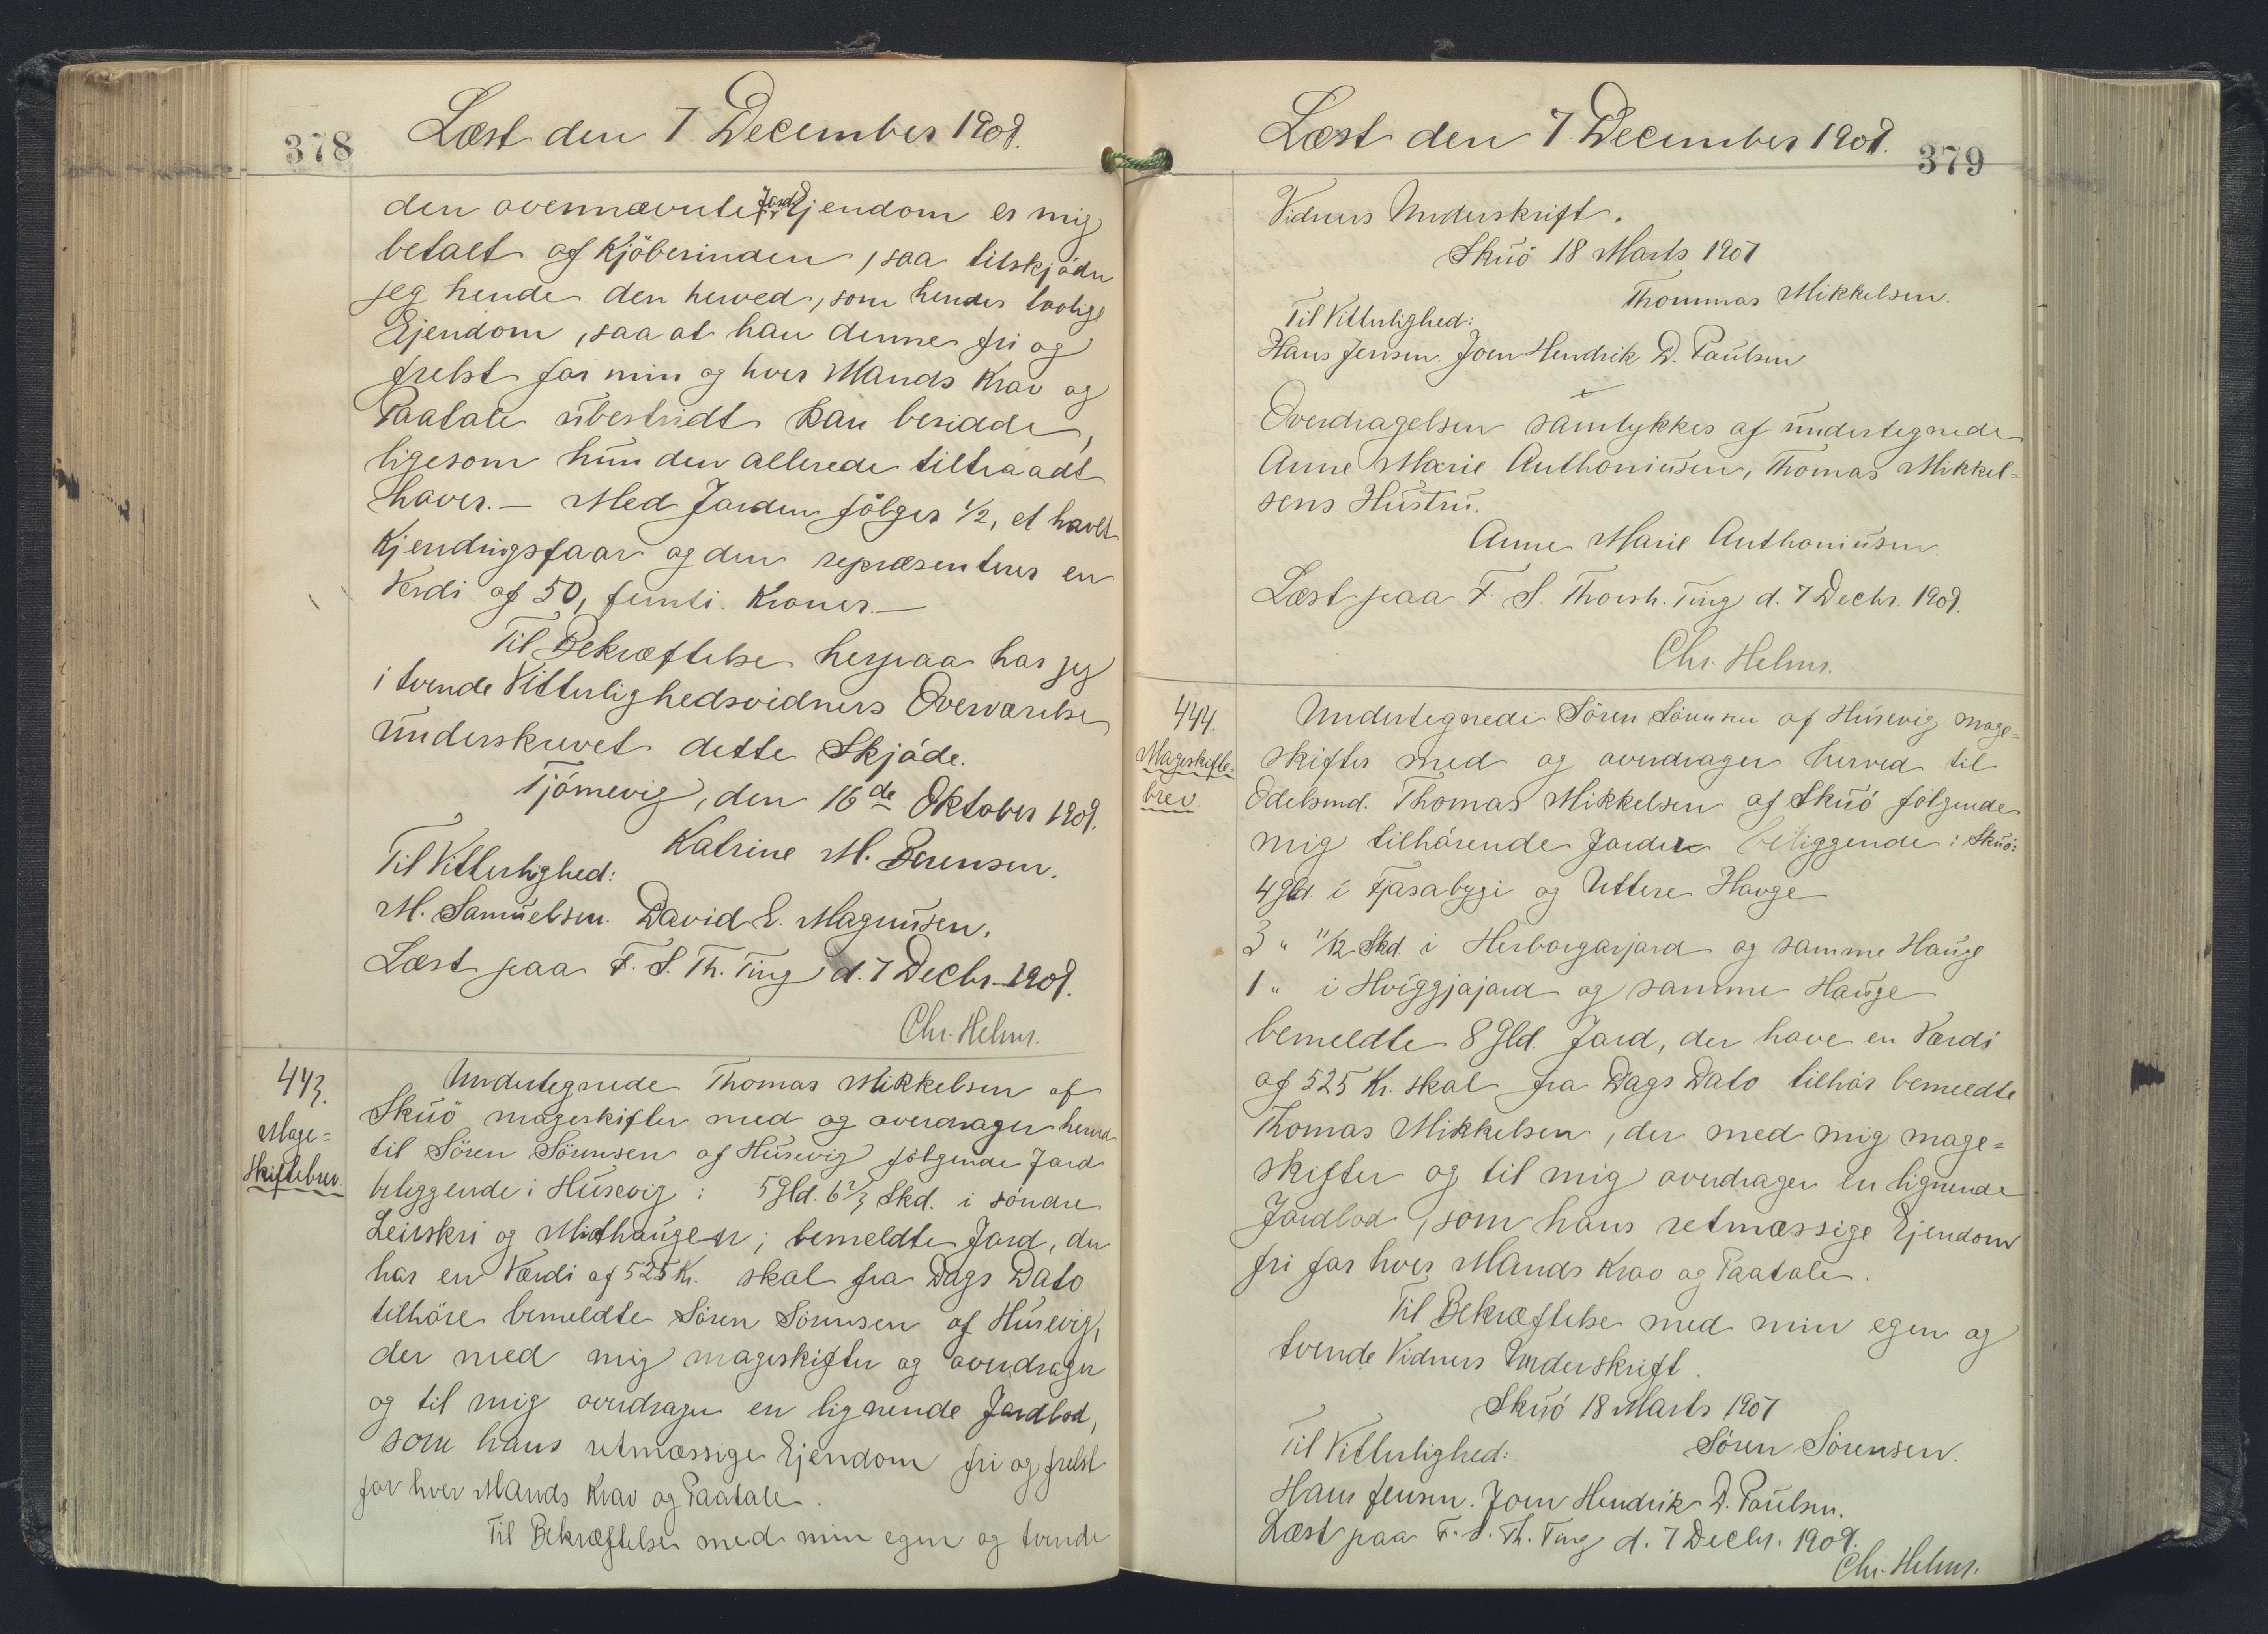 378
Læst den 7 December 1909.
den ovennævnte Jord Ejendom er mig
betalt af Kjöberinden, saa tilskjöder
jeg hende den herved, som hendes lovlige
Ejendom, saa at hau denne fri og
frelst for min og hver Mands Krav og
Paatale übestridt kan besidde,
ligesom hün den allerede tiltraadt
haver. — Med Jorden fölger 1/2, et havlt
Kjendingsfaar og den repræsenterer en
Verdi af 50, femti. Kroner. —
Til Bekræftelse herpaa har jeg
i tvende Vitterlighedsvidners Overværelse
ünderskrevet dette Skjöde.
Tjörnevig, den 16de Oktober 1909.
Katrine M. Sørensen.
Til Vitterlighed:
M. Samüelsen. David E. Magnüsen.
Læst paa F. S. Th. Ting d. 7 Decbr. 1909.
Chr. Helms.
443.
Mage=
skiftebrev.
Undertegnede Thomas Mikkelsen af
Sküö mageskifter med og overdrager herved
til Sören Sörensen af Hüsevig fölgende Jord
beliggende i Hüsevig: 5 Gld. 6 2/3 Skd. i söndre
Leirskri og Midthaügen; bemeldte Jord, der
har en Værdi af 525 Kr. skal fra Dags Dato
tilhöre bemeldte Sören Sörensen af Hüsevig,
der med mig mageskifter og overdrager
og til mig overdrager en lignende Jordlod,
som hans retmæssige Ejendom fri og frelst
for hver Mands Krav og Paatale.
Til Bekræftelse med min egen og tvende
Læst den 7. December 1909.
379
Vidners Underskrift.
Sküö 18 Marts 1907
Thommas Mikkelsen.
Til Vitterlighed:
Hans Jensen. Joen Hendrik D. Paülsen
Overdragelsen samtykkes af ündertegnede
Anne Marie Anthoniüsen, Thomas Mikkel=
sens Hüstrü.
Anne Marie Anthoniüsen.
Læst paa F. S. Thorsh. Ting d. 7 Decbr. 1909.
Chr. Helms.
444.
Mageskifte=
brev.
Undertegnede Sören Sörensen af Hüsevig mage=
skifter med og overdrager herved til
Odelsmd. Thomas Mikkelsen af Sküö følgende
mig tilhörende Jorder beliggende i Sküö:
4 Gld. i Fjasabygi og Uttere Havge
3 " 11/12 Skd. i Herborgarjord og samme Haüge
1 " i Hviggjajord og samme Haüge
bemeldte 8 Gld. Jord, der have en Værdi
af 525 Kr. skal fra Dags Dato tilhör bemeldte
Thomas Mikkelsen, der med mig mage=
skifter og til mig overdrager en lignende
Jordlod, som hans retmæssige Ejendom
fri for hver Mands Krav og Paatale.
Til Bekræftelse med min egen og
tvende Vidners Underskrift.
Sküö 18 Marts 1907
Sören Sörensen.
Til Vitterlighed:
Hans Jensen. Joen Hendrik D. Paülsen.
Læst paa F. S. Th. Ting d. 7 Decbr. 1909.
Chr. Helms.